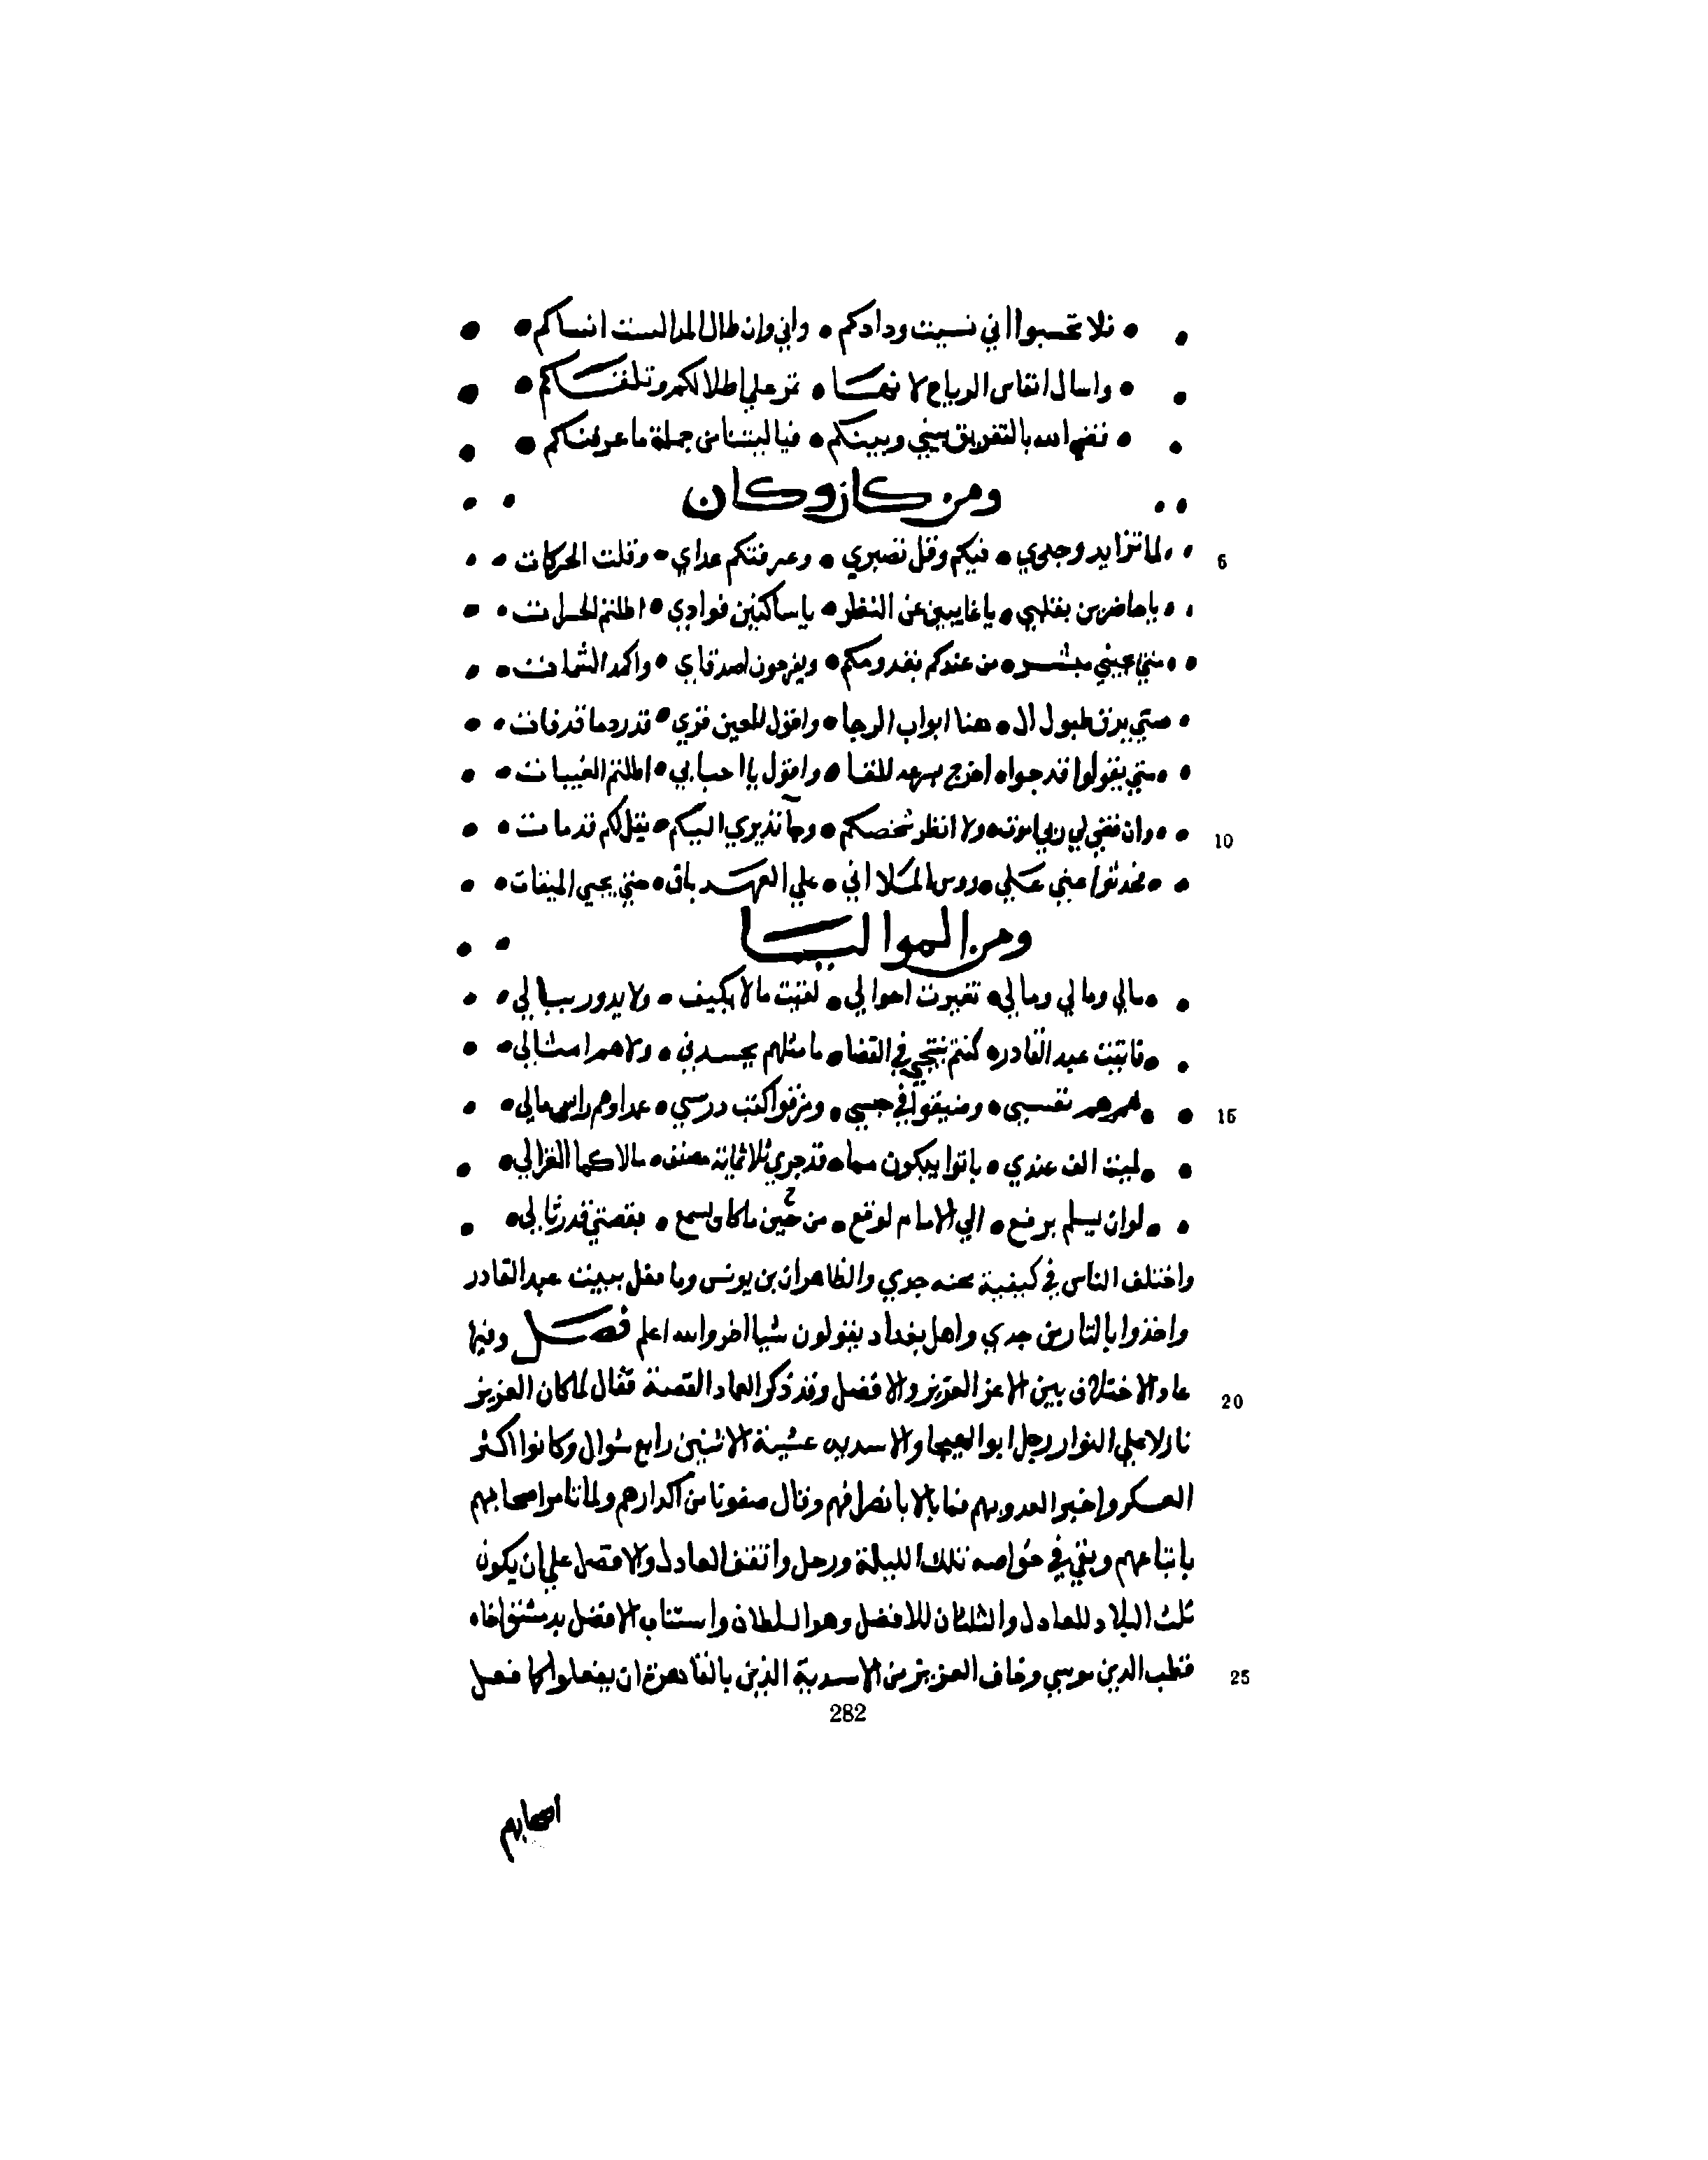 فلا تحسبوا اني نسيت ودادكم • واني وان طال المدا لست انساكم
واسال انفاس الرياح لانها • تمر علي اطلالكم وتلقاكم
قضي الله بالتفريق بيني وبينكم • فيا ليتنا من جملة ما عرفناكم
ومن كان وكان
لما تزايد وجدي • فيكم وقل تصبري • وعرفتكم عداي • وقلت الحركات
يا حاضرين بقلبي • يا غايبين عن النظر • يا ساكنين فوادي • اطلتم الحسرات
متي يجيني مبشر • من عندكم بقدومكم • ويفرحون اصدقاي • واكمد الشمات
متي يرق طبول ال • هنا ابواب الرجا • واقول للعين قري • قد رد ما قد فات
متي يقولوا قد جوا • اخرج للقا • واقول يا احبابي • اطلتم الغيبات
وان قضي لي ربي موت • ولا انظر شخصكم • وجا نذيري اليكم • يقل لكم قد مات
فحدثوا عني علي • روس الملا اني • علي العهد باق • متي يجي الميقات
ومن المواليا
مالي ومالي ومالي • تغيرت احوالي • لقيت ما لا يكيف • ولا يدور ببالي
بيت عبد القادر • كنتم في القضا • ما مثلهم يحسدني • ولا هم امثالي
نفسي • وضيقوا في حبسي • ومزقوا كتب درسي • هم راس مالي
ليت الف عندي • باتوا يبكون • قد جري ثلاثماية مصنف • مالا كما الغزالي
لو ان يسلم يرفع • الي الامام لوقع • من حين ما كان يسمع • بقصتي قد رثا لي
واختلف الناس في كيفية محنه جدي والظاهر ان بن يونس وما فعل ببيت عبد القادر
واخذوا بالثار من جدي واهل بغداد يقولون شيا اخر والله اعلم فصل وفيها
عاد الاختلاف بين الاعز العزيز والافضل وقد ذكر العماد القصة فقال لما كان العزيز
نازلا علي الفوار رحل ابو الهيجا والاسدية عشية الاثنين رابع شوال وكانوا اكثر
العسكر واخبروا العدو بهم فما بالا بانصرافهم وقال صفونا من اكدارهم ولما تامر اصحابهم
باتباعهم وبقي في خواصه تلك الليلة ورحل واتفق العادل والافضل علي ان يكون
ثلث البلاد للعادل والثلثان للافضل وهو السلطان واستناب الافضل بدمشق اخاه
قطب الدين موسي وخاف العزيز من الاسدية الذين بالقاهرة ان يفعلوا كما فعل
5
10
15
20
25
282
اصحابهم